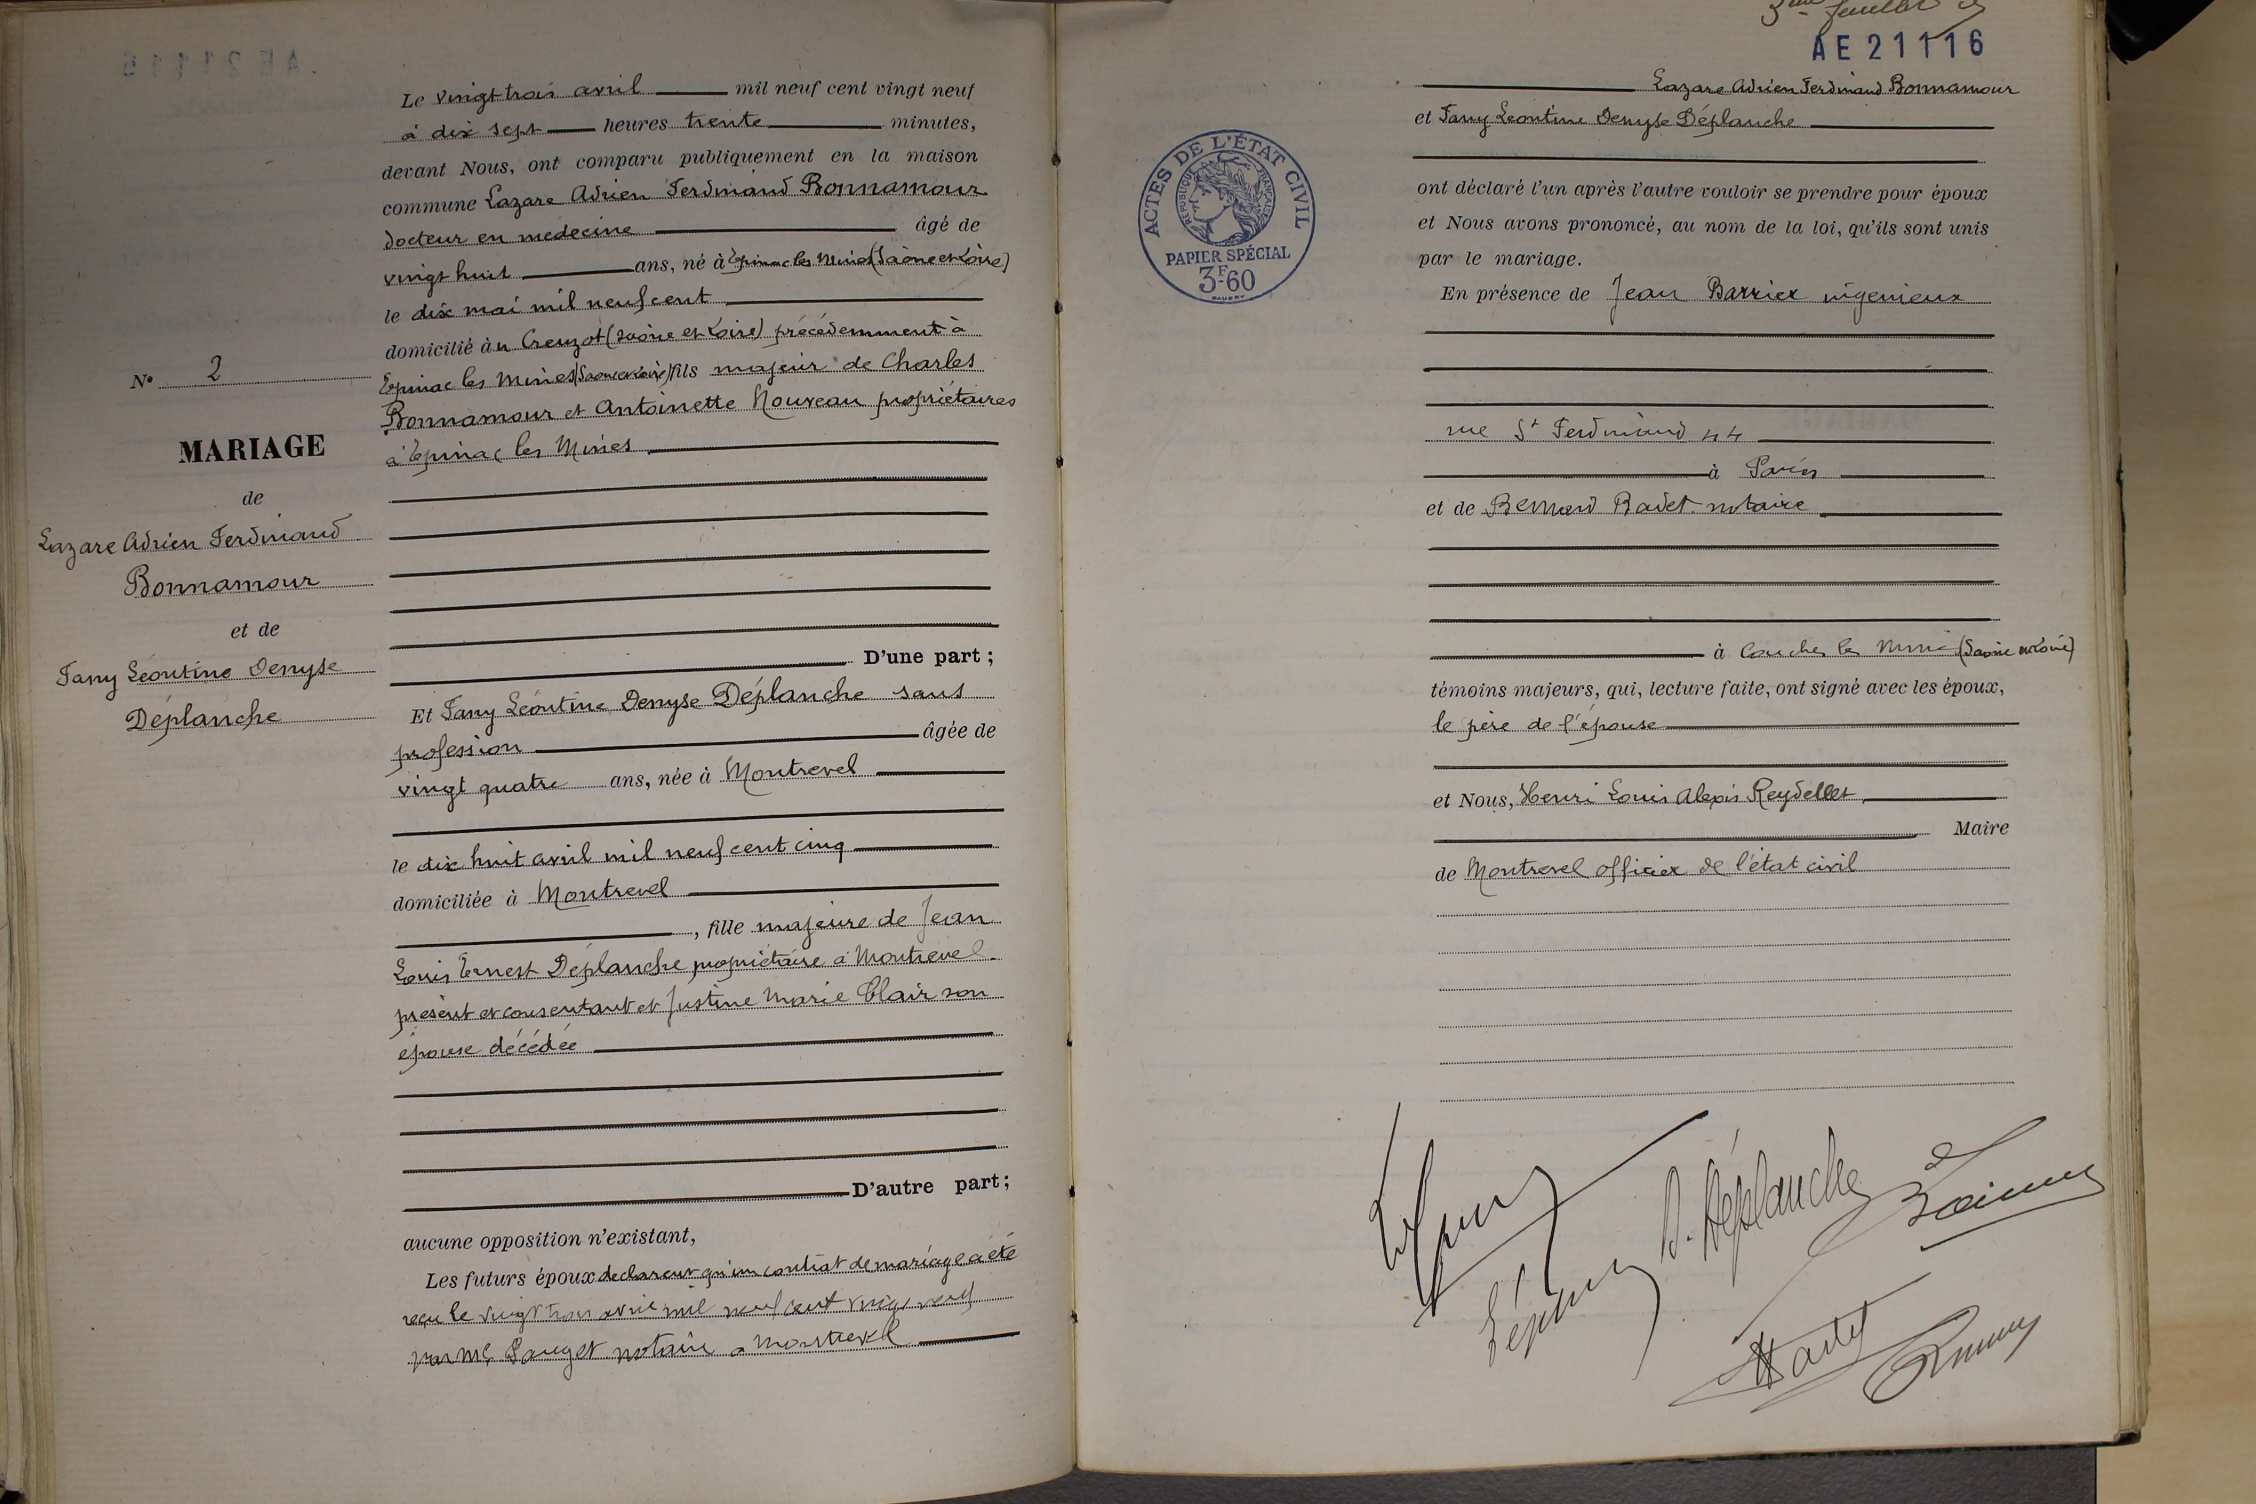 Le vingt trois avril mil neuf cent vingt neuf
à dix sept heures trente minutes,
devant Nous, ont comparu publiquement en la maison
commune Lazare Adrien Ferdinand Bonnamour
docteur en médecine âgé de
vingt huit ans, né à Epinac les Mines (Saône et Loire)
le dix mai mil neuf cent
domicilié àu Creuzot (Saône et Loire) précédemment à
Epinac les Mines (Saone et Loire) fils majeur de Charles
Bonnamour et Antoinette Nouveau propriétaires
à Epinac les Mines
N° 2
MARIAGE
de
Lazare Adrien Ferdinand
Bonnamour
et de
Fany Léontine Denyse
Déplanche
D'une part ;
Et Fany Léontine Denyse Déplanche sans
profession âgée de
vingt quatre ans, née à Montrevel
le dix huit avril mil neuf cent cinq
domiciliée à Montrevel
, fille majeure de Jean
Louis Ernest Déplanche propriétaire à Montrevel
présent et consentant et Justine Marie Clair son
épouse décédée
D'autre part ;
aucune opposition n'existant,
Les futurs époux declarent qu'un contrat de mariage a été
reçu le vingt trois avril mil neuf cent vingt neuf
par Me Pauget notaire a Montrevel
3me feuillet
AE 21116
Lazare Adrien Ferdinand Bonnamour
et Fany Leontine Denyse Déplanche
ACTES DE L'ÉTAT CIVIL
RÉPUBLIQUE FRANÇAISE
PAPIER SPÉCIAL
3F.60
ont déclaré l'un après l'autre vouloir se prendre pour époux
et Nous avons prononcé, au nom de la loi, qu'ils sont unis
par le mariage.
En présence de Jean Barrier ingenieur
rue St Ferdinand 44
à Paris
et de Bernard Radet notaire
à Couches les Mines (Saone et Loire)
témoins majeurs, qui, lecture faite, ont signé avec les époux,
le père de l'épouse
et Nous, Henri Louis Alexis Reydellet
Maire
de Montrevel officier de l'état civil
D. Déplanche